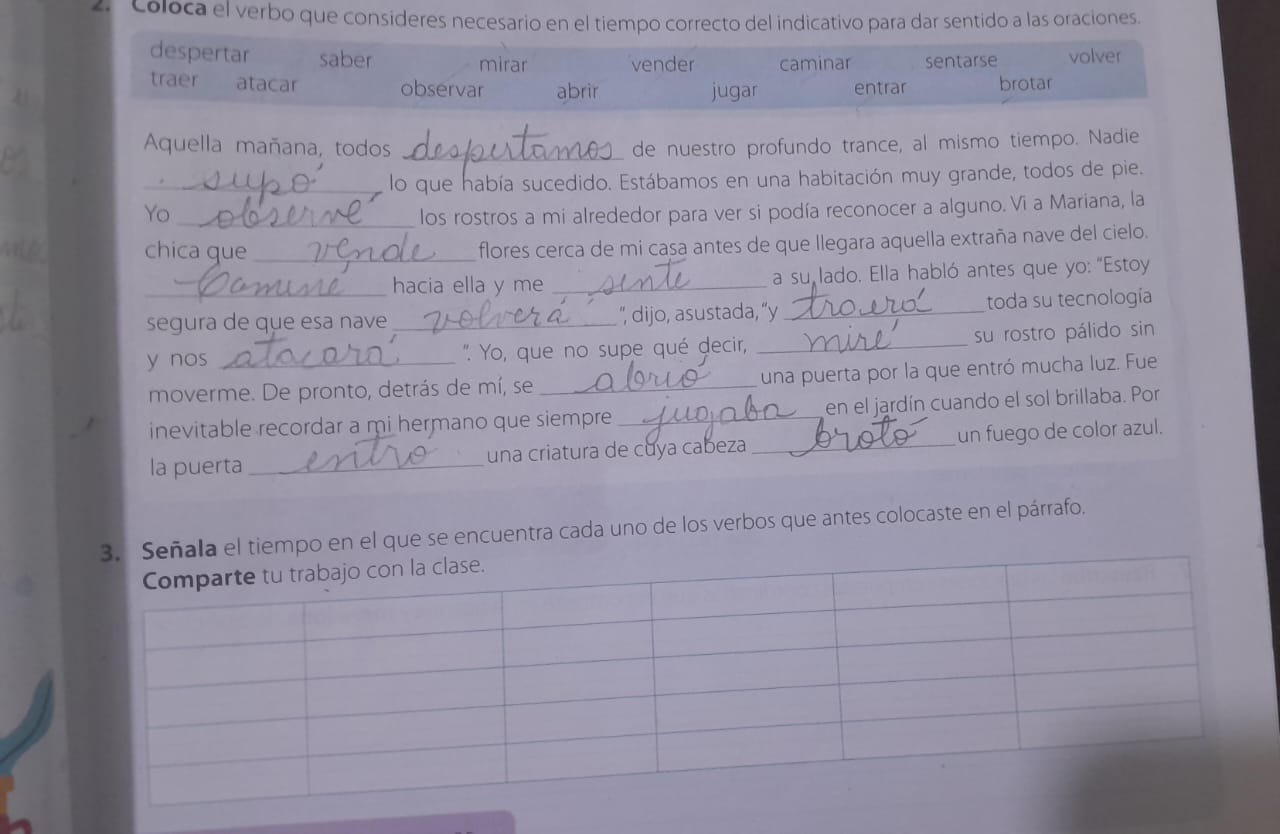 2. Coloca el verbo que consideres necesario en el tiempo correcto del indicativo para dar sentido a las oraciones.
despertar saber mirar vender caminar sentarse volver
traer atacar observar abrir jugar entrar brotar
Aquella mañana, todos despertamos de nuestro profundo trance, al mismo tiempo. Nadie
supo lo que había sucedido. Estábamos en una habitación muy grande, todos de pie.
Yo observé los rostros a mi alrededor para ver si podía reconocer a alguno. Vi a Mariana, la
chica que vende flores cerca de mi casa antes de que llegara aquella extraña nave del cielo.
Caminé hacia ella y me senté a su lado. Ella habló antes que yo: "Estoy
segura de que esa nave volverá", dijo, asustada, "y traerá toda su tecnología
y nos atacará". Yo, que no supe qué decir, miré su rostro pálido sin
moverme. De pronto, detrás de mí, se abrió una puerta por la que entró mucha luz. Fue
inevitable recordar a mi hermano que siempre jugaba en el jardín cuando el sol brillaba. Por
la puerta entró una criatura de cuya cabeza brotó un fuego de color azul.
3. Señala el tiempo en el que se encuentra cada uno de los verbos que antes colocaste en el párrafo.
Comparte tu trabajo con la clase.